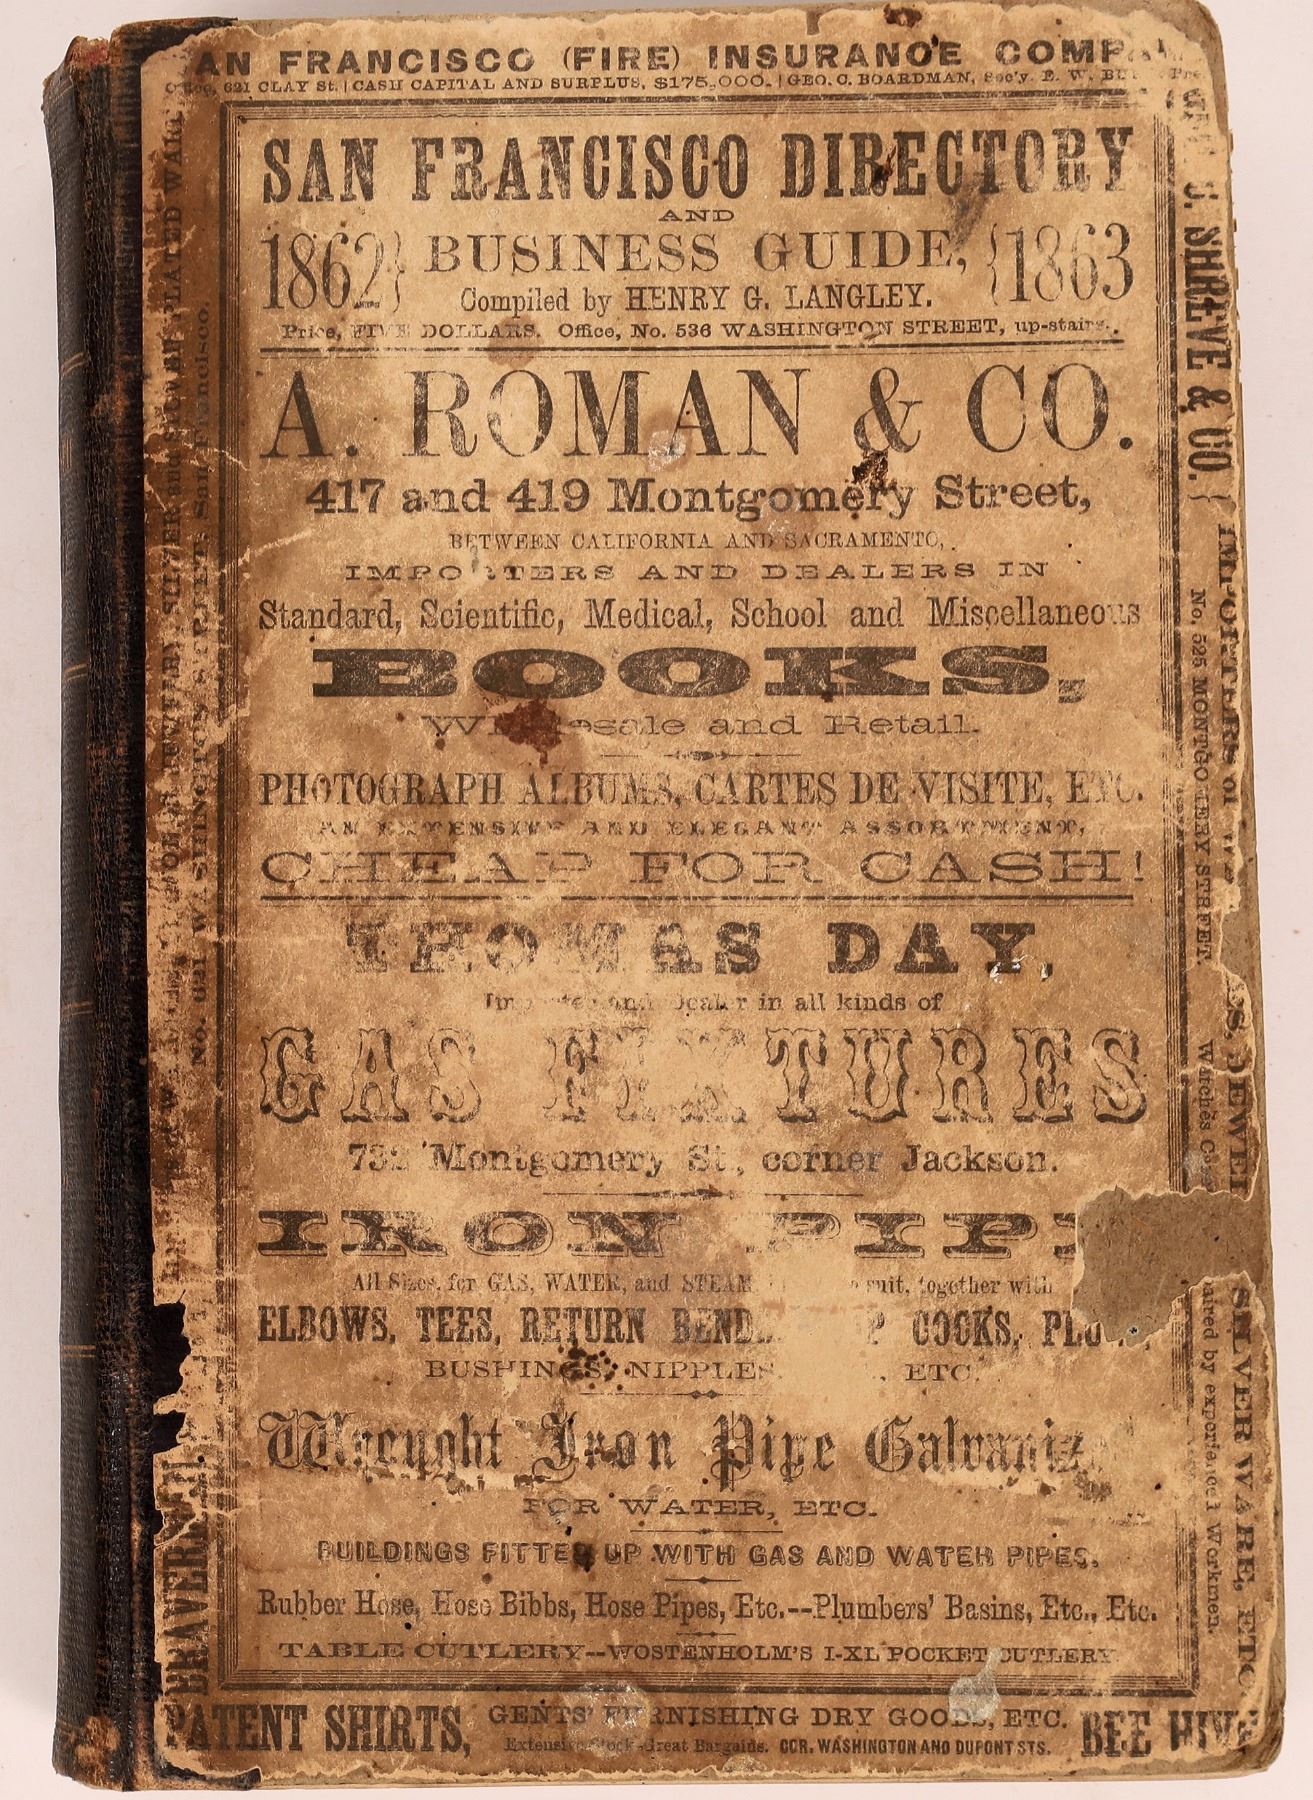 AN FRANCISCO (FIRE) INSURANCE COMP
621 CLAY St. | CASH CAPITAL AND SURPLUS, $175,000. | GEO. C. BOARDMAN, Sec'y. E. W.
SAN FRANCISCO DIRECTORY
AND
1862} BUSINESS GUIDE, {1863
Compiled by HENRY G. LANGLEY.
Price, FIVE DOLLARS. Office, No. 536 WASHINGTON STREET, up-stairs.
A. ROMAN & CO.
417 and 419 Montgomery Street,
BETWEEN CALIFORNIA AND SACRAMENTO,
IMPORTERS AND DEALERS IN
Standard, Scientific, Medical, School and Miscellaneous
BOOKS,
Wholesale and Retail.
PHOTOGRAPH ALBUMS, CARTES DE VISITE, ETC.
AN EXTENSIVE AND ELEGANT ASSORTMENT,
CHEAP FOR CASH!
THOMAS DAY,
Importer and Dealer in all kinds of
GAS FIXTURES
732 Montgomery St., corner Jackson.
IRON PIP
All Sizes, for GAS, WATER, and STEAM, suit, together with
ELBOWS, TEES, RETURN BENDS, COCKS,
BUSHINGS, NIPPLES, ETC.
Wrought Iron Pipe Galvaniz
FOR WATER, ETC.
BUILDINGS FITTED UP WITH GAS AND WATER PIPES.
Rubber Hose, Hose Bibbs, Hose Pipes, Etc.--Plumbers' Basins, Etc., Etc.
TABLE CUTLERY--WOSTENHOLM'S I-XL POCKET CUTLERY.
PATENT SHIRTS, GENTS' FURNISHING DRY GOODS, ETC. BEE HIVE
Extensive Stock--Great Bargains. COR. WASHINGTON AND DUPONT STS.
SILVER and SILVER PLATED WARE
No. 621 WASHINGTON STREET, San Francisco.
S. SHREVE & CO. { IMPORTERS of JEWEL SILVER WARE, ETC.
No. 525 MONTGOMERY STREET. Watches by experienced Workmen.